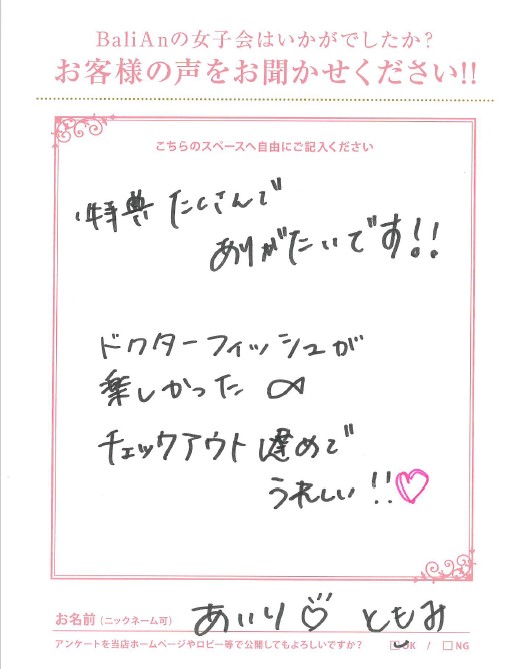 BaliAnの女子会はいかがでしたか?
お客様の声をお聞かせください!!
こちらのスペースへ自由にご記入ください
特典たくさんで
ありがたいです!!
ドクターフィッシュが
楽しかった
チェックアウト遅めで
うれしい!!♡
お名前(ニックネーム可) あいり♡ ともみ
アンケートを当店ホームページやロビー等で公開してもよろしいですか? □OK / □NG